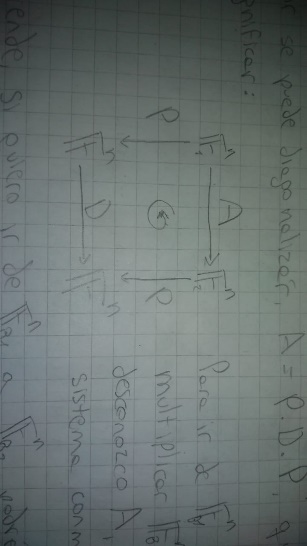 se puede diagonalizar, A = P.D.P
gnificar:
𝔽ⁿ A 𝔽ⁿ
P P
𝔽ⁿ D 𝔽ⁿ
Para ir de 𝔽ⁿ
multiplicar
desconozco A,
sistema, con m
ende, si quiero ir de 𝔽ⁿ a 𝔽ⁿ